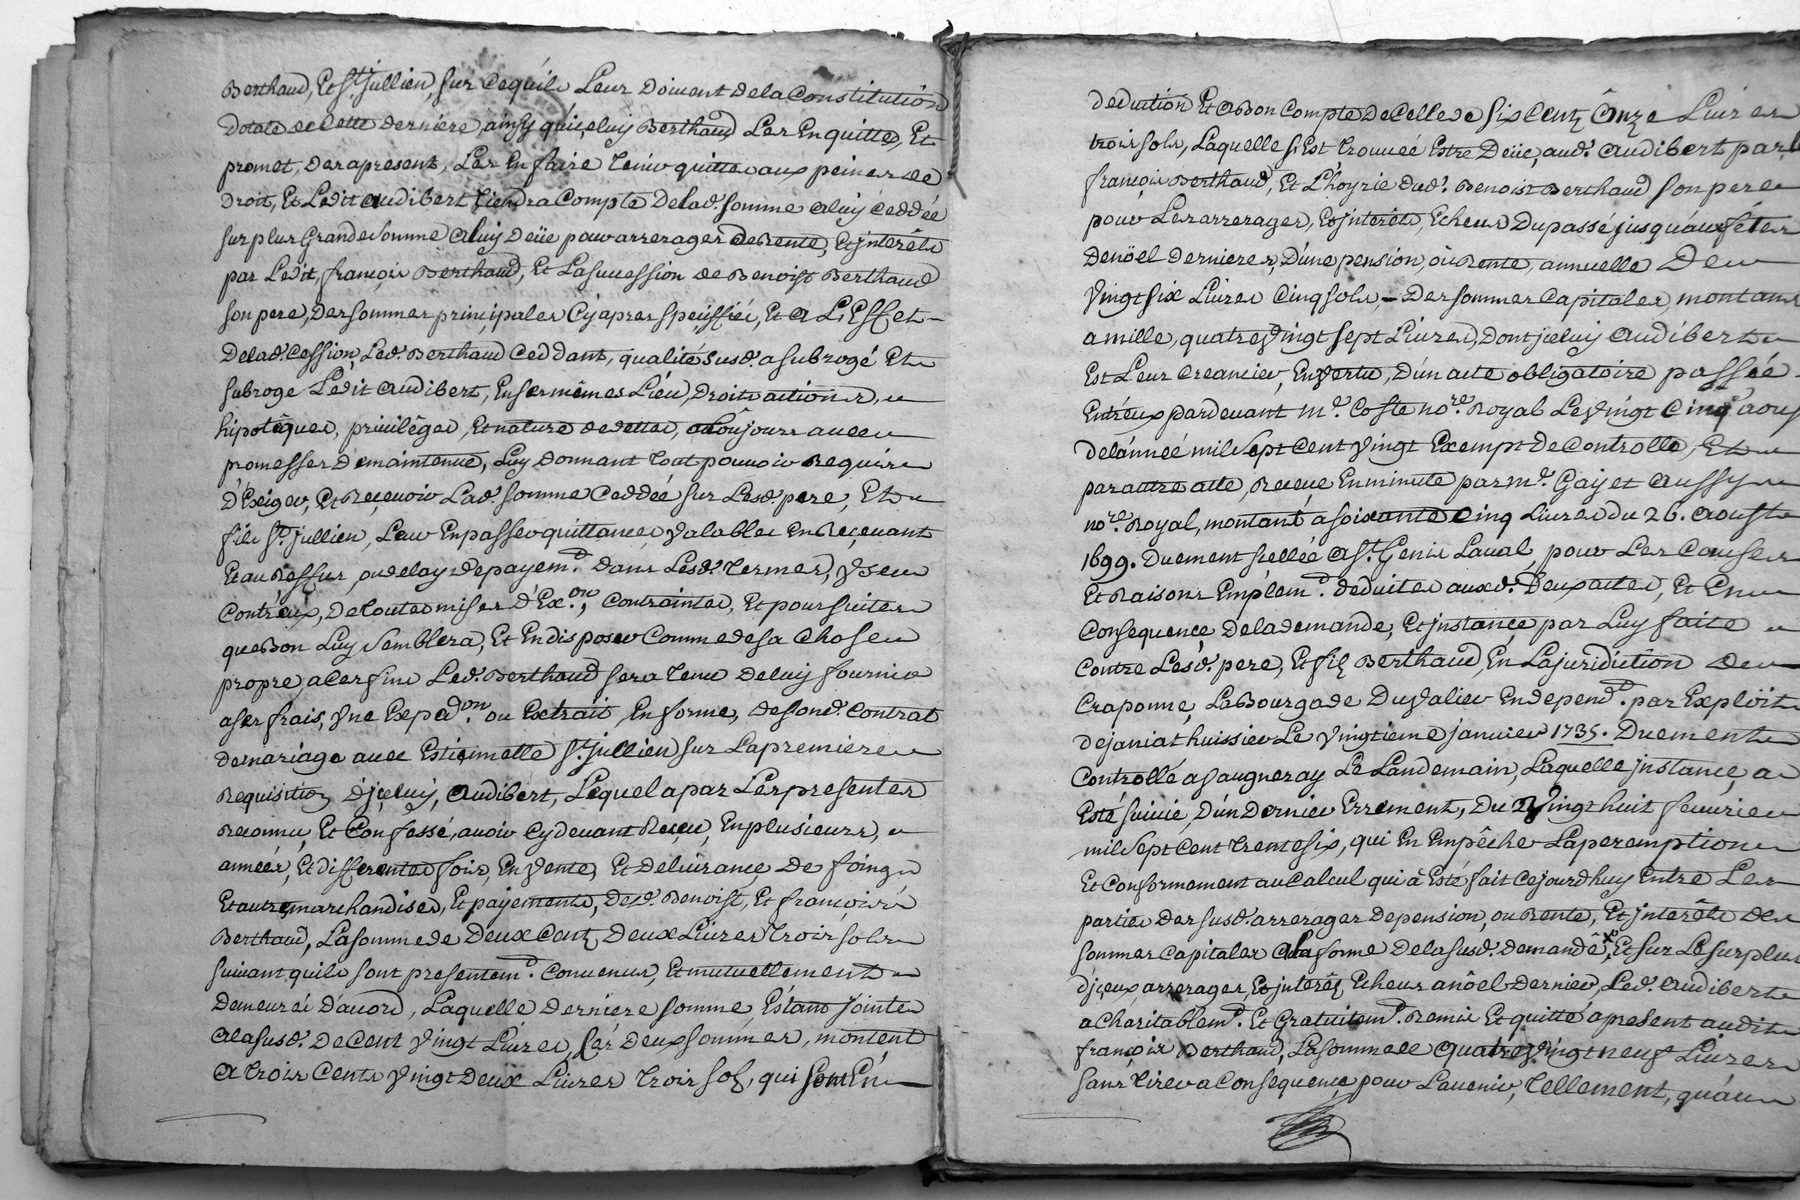 Berthaud, Et St. Jullien, sur cequils Leur doivent dela Constitution
dotale de Cette derniere, ainsy qu'icluy Berthaud Les En quitte, Et
promet, des apresent, Les En faire tenir quitte aux peines de
droit, Et Ledit audibert tiendra Compte Delad. somme aluy Ceddée
sur plus Grande somme aluy Deüe pour arrerages de Rente, Et jnterêts
par Ledit, françois Berthaud, Et La succession de Benoist Berthaud
son pere, Des sommes principales Cy apres speciffiéé, Et a L'Effet
Delad. Cession, Led. Berthaud Ceddant, qualité susd. a subrogé Et
subroge Ledit audibert, En ses mêmes Lieu, Droits actions,
hipotêques, privilêges, Et nature de dette, a toujours avec
promesses De maintenue, Luy donnant tout pouvoir Requis
D'Exiger, Et Reçevoir Lad. somme Ceddéé sur Lesd. pere, Et
fils St. jullien, Leur En passer quittance, valables En Reçevant
Et au Reffus, ou delay de payem.t dans Lesd. termes, User
Contr'eux, De toutes mises d'Ex.on, Contraintes, Et poursuites
que Bon Luy semblera, Et En disposer Comme de sa Chose
propre, a Ces fins Led. Berthaud sera tenu De luy fournir
a ses frais, Une Exped.on ou Extrait En forme, de son d. Contrat
de mariage avec Estiennette St. jullien sur La premiere
Requisition D'jceluy, audibert, Lequel a par Les presentes
Reconnu, Et Confessé, avoir Cy devant Reçu, En plusieurs,
années, Et differentes fois, En Vente, Et Delivrance De foings
Et autres marchandises, Et payements, Desd. Benoist, Et françois
Berthaud, La somme de Deux Cent, Deux Livres trois sols
suivant quils sont presentem.t Convenus, Et mutuellement
Demeuréé D'acord, Laquelle Derniere somme, Estant jointe
a La susd. De Cent Vingt Livres, Les Deux sommes, montent
a trois Cents Vingt Deux Livres trois sols, qui sont En
deduction Et a Bon Compte De Celle de six Cent Onze Livres
trois sols, Laquelle s'Est trouvéé Estre Deüe, aud. audibert par
françois Berthaud, Et L'hoyrie dud. Benoist Berthaud son pere
pour Les arrerages, Et jnterêts, Echeus Du passé jusqu'aux fêtes
De nöel dernieres, D'une pension, où Rente, annuelle De
Vingt six Livres Cinq sols, Des sommes Capitales, montant
a mille, quatre Vingt sept Livres, Dont jceluy audibert
Est Leur Creancier, En Vertu, D'un acte obligatoire passéé
Entr'eux pardevant m.e Coste no.re Royal Le Vingt Cinq aoust
de L'année mil sept Cent Vingt Exempt de Controlle, Et
par autre acte, Reçue En minute par m.e Gayet aussy
no.re Royal, montant a soixante Cinq Livres du 26. aoust
1699. Duement scellée a St. Genis Laval, pour Les Causes
Et Raisons Emplem.t deduites auxd. Deux actes, Et En
Consequence De la demande, Et jnstance par Luy faite
Contre Lesd. pere, Et fils Berthaud, En La juridiction de
Craponne, La Bourgade Du Valier En depend.t par Exploit
de janiat huissier Le Vingtieme janvier 1735. Duement
Controllé a Vaugneray Le Landemain, Laquelle jnstance, a
Esté suivie, D'un Dernier Errement, Du Vingt huit fevrier
mil sept Cent trente six, qui En Empêche La peremption
Et Conformement au Calcul qui à Esté fait Ce jourd'huy Entre Les
parties Des susd. arrerages De pension, ou Rente, Et jnterêts des
sommes Capitales a la forme De la susd. demande, Et sur Le surplus
d'jceux arrerages, Et jnterêts Echeus a nöel dernier, Led. audibert
a Charitablem.t Et Gratuitem.t Remis Et quitté a present audit
françois Berthaud, La somme de quatre Vingt neuf Livres
sans tirer a Conséquence pour L'avenir, tellement, qu'au